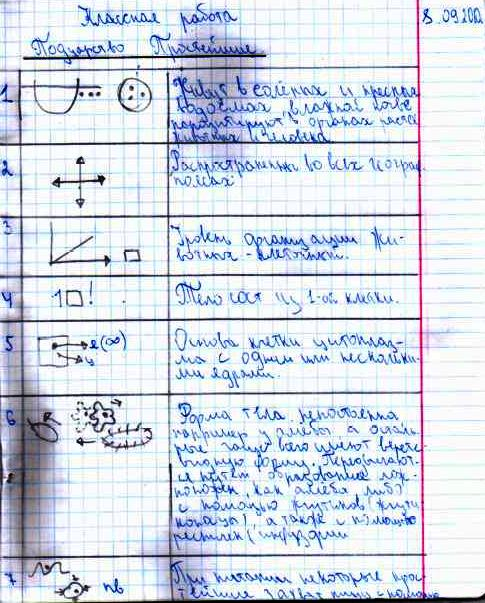 Классная работа
8.09.200
Подцарство Простейшие
1
Живут в солёных и пресных
водоёмах влажной почве
паразитируют в органах расте
животных и человека
2
Распространены во всех геогра
поясах
3
Уровень организации Жи-
вотных - клеточный.
4
1 !
Тело сост из 1-ой клетки.
5
я(∞)
ц
Основа клетки цитоплаз-
ма с одним или несколькими
ми ядрами.
6
Форма тела непостоянна
например у амёбы а осталь
ные чаще всего имеют верете
видную форму. Передвигают-
ся путём образования лож-
поножек, как амёба либо
с помощью жгутиков (жгути
коносцы), а также с помощью
ресничек (инфузории
7
пв
При питании некоторые прос-
тейшие захват пищу с помощью